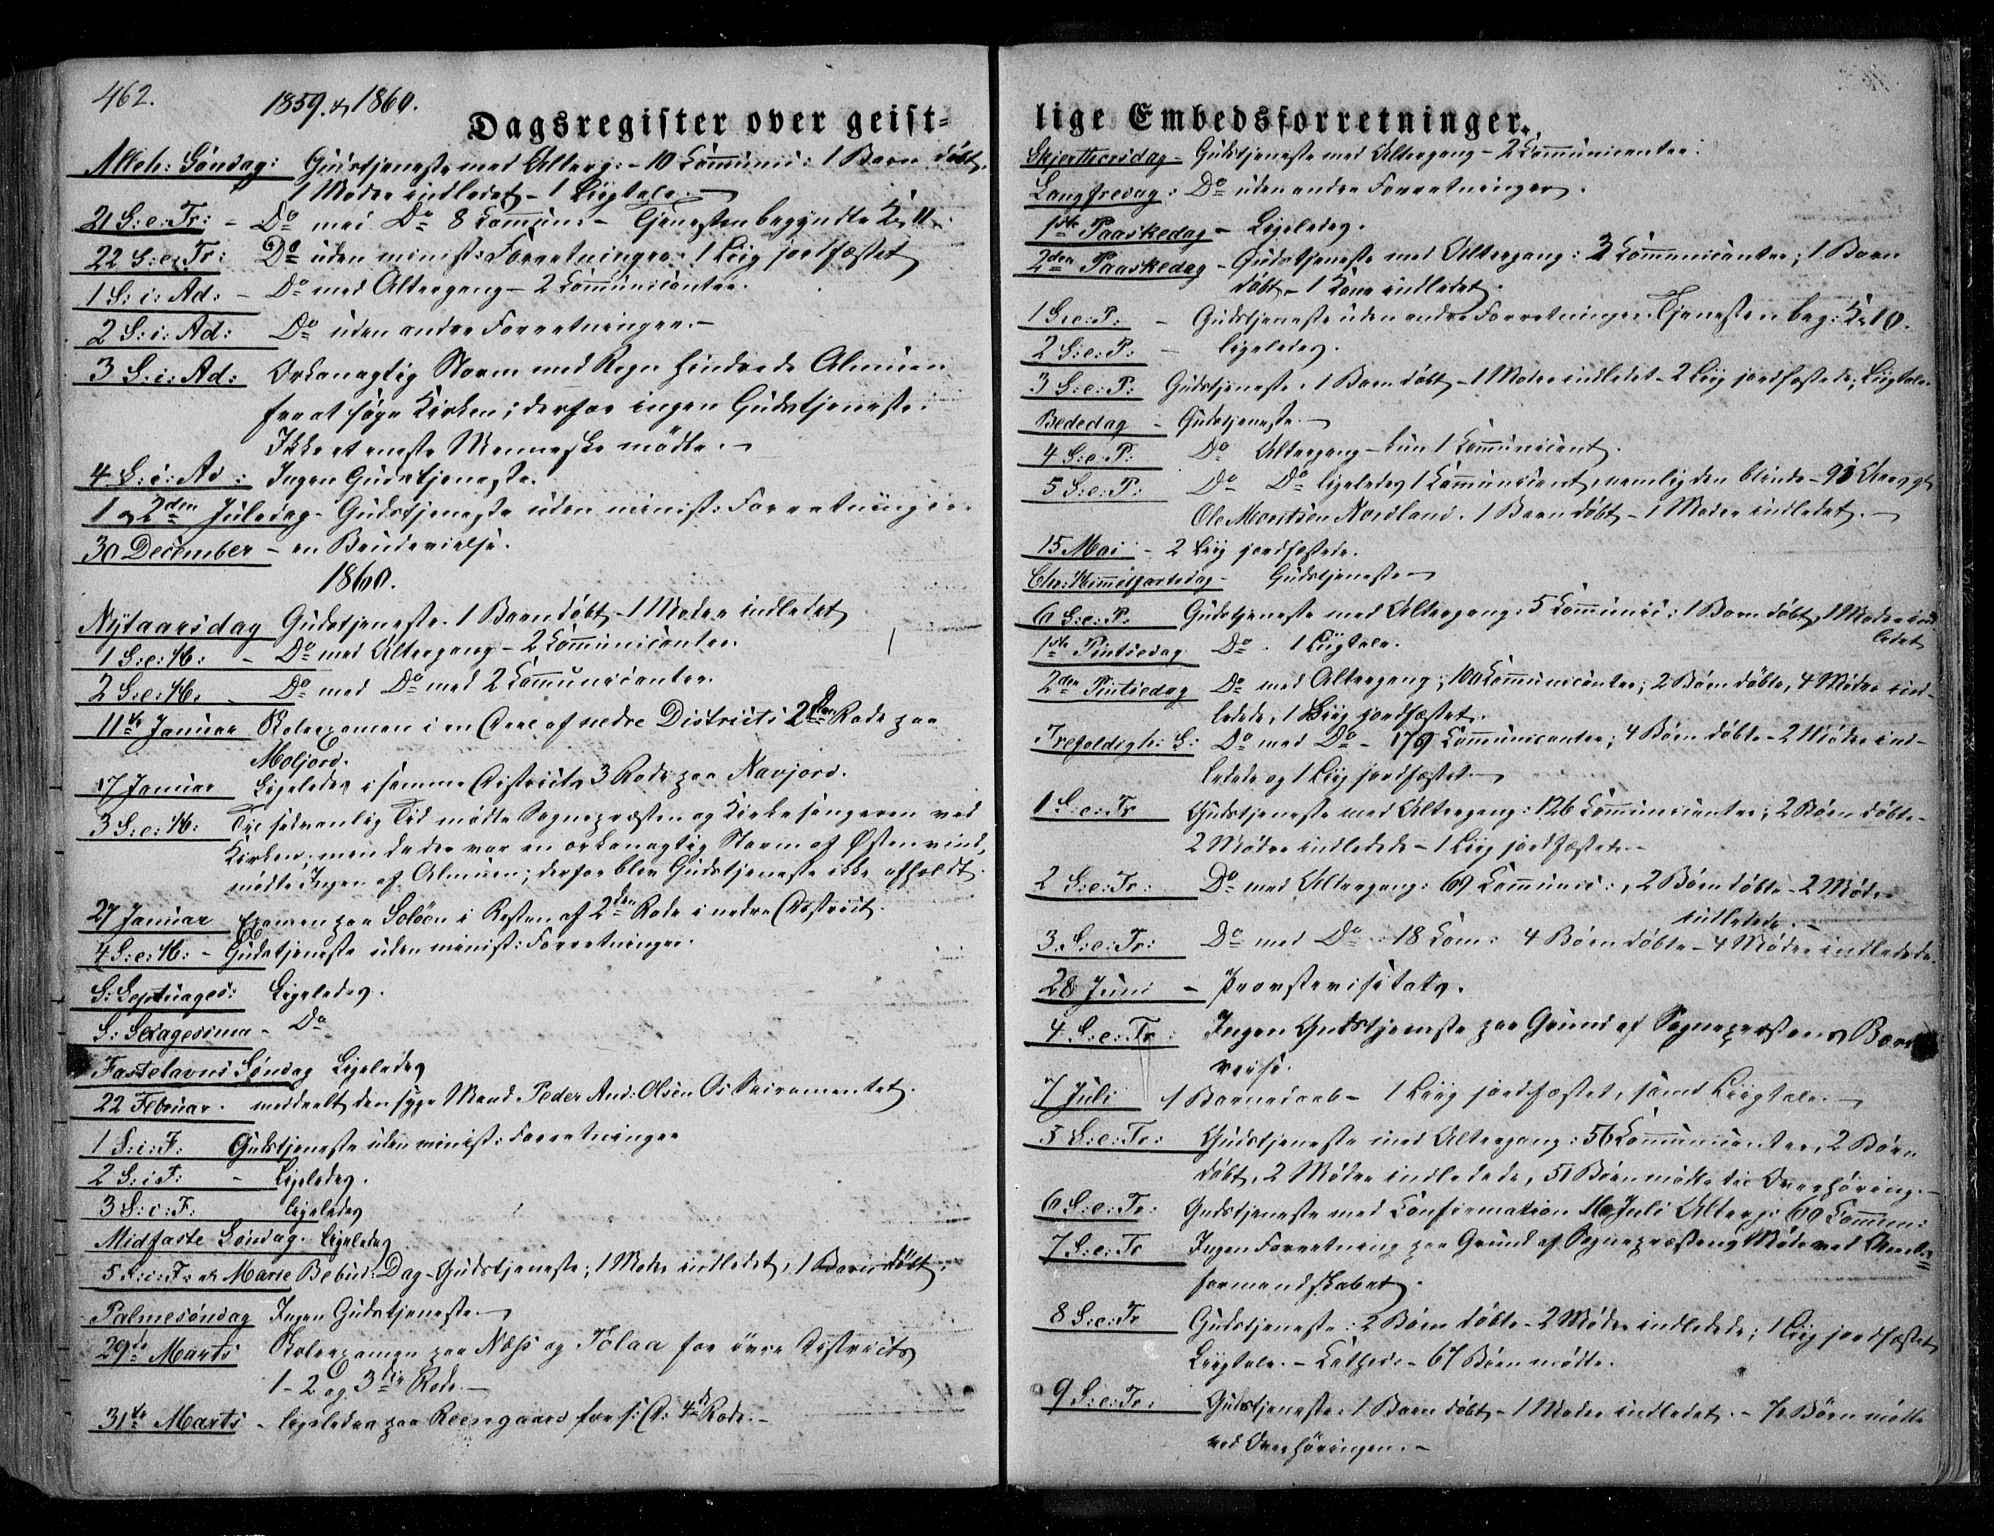 462.
1859. & 1860.
Dagsregister over geist-
Alleh: Søndag: Gudstjeneste med Alterg: - 10 Communi: 1 Barn døbt,
1 Moder indledet - 1 Liigtale. -
21 S: e: Tr: - Do med Do 8 Commun: - Tjenesten begyndte Kl 11.
22 S: e: Tr: Do uden minist: Forretninger. 1 Liig jordfæstet
1 S: i: Ad: - Do med Altergang - 2 Communicanter.
2 S: i: Ad: Do uden andre Forretninger. -
3 S: i: Ad: Orkanagtig Storm med Regn hindrede Almuen
fra at søge Kirken; derfor ingen Gudstjeneste.
Ikke et eneste Menneske mødte. -
4 S: i: Ad: Ingen Gudstjeneste.
1 og 2den Juledag - Gudstjeneste uden minist: Forretninger.
30 December - en Brudevielse.
1860.
Nytaarsdag Gudstjeneste. 1 Barn døbt - 1 Moder indledet
1 S: e: H: - Do med Altergang - 2 Communicanter.
2 S: e: H: - Do med Do med 2 Communicanter.
11te Januar Skoleexamen i en Deel af nedre Districts 2den Rode paa
Moljord.
17 Januar Ligeledes i samme Districts 3 Rode paa Navjord.
3 S: e: H: Til sædvanlig Tid mødte Sognepræsten og Kirkesangeren ved
Kirken; men da der var en orkanagtig Storm af Østenvind,
mødte Ingen af Almuen; derfor blev Gudstjeneste ikke afholdt.
27 Januar Examen paa Soløen i Resten af 2den Rode i nedre District.
4 S: e: H: - Gudstjeneste uden minist: Forretninger.
S: Septuages: Ligeledes.
S: Sexagesima - Do
Fastelavns Søndag Ligeledes
22 Februar. meddeelt den syge Mand Peder And: Olsen Os Sacramentet.
1 S: i: F. Gudstjeneste uden minist: Forretninger
2 S: i F: - Ligeledes.
3 S: i: F: Ligeledes
Midfaste Søndag. Ligeledes
5 S: i: F: & Marie Bebud: Dag - Gudstjeneste; 1 Moder indledet, 1 Barn døbt.
Palmesøndag Ingen Gudstjeneste. -
29de Marts Skoleexamen paa Næss og Tolaa for øvre Districts
1 - 2 og 3die Rode. -
31te Marts - Ligeledes paa Reengaard for s: D: 4de Rode. -
lige Embedsforretninger.
Skjærthorsdag - Gudstjeneste med Altergang - 2 Communicanter.
Langfredag: Do uden andre Forretninger.
1ste Paaskedag - Ligeledes.
2den Paaskedag - Gudstjeneste med Altergang: 3 Communicanter; 1 Barn
døbt - 1 Kone indledet.
1 S: e: P: - Gudstjeneste uden andre Forretninger. Tjenesten beg: Kl 10.
2 S: e: P: - Ligeledes.
3 S: e: P: Gudstjeneste. 1 Barn døbt - 1 Moder indledet - 2 Liig jordfæstede; Liigtale.
Bededag - Gudstjeneste. -
4 S: e: P: Do Altergang - kun 1 Communicant.
5 S: e: P: Do Do ligeledes 1 Communicant, nemlig den blinde - 93 Aar gl
Ole Moritsen Nordland. 1 Barn døbt - 1 Moder indledet. -
15 Mai - 2 Liig jordfæstede.
Chr: Himmelfartsdag - Gudstjeneste -
6 S: e: P. Gudstjeneste med Altergang: 5 Communic: 1 Barn døbt, 1 Moder ind-
ledet
1ste Pintsedag Do. 1 Liigtale.
2den Pintsedag Do med Altergang; 100 Communicanter; 2 Børn døbte, 4 Mødre ind-
ledede, 1 Liig jordfæstet.
Trefoldigh: S: Do med Do - 179 Communicanter; 4 Børn døbte - 2 Mødre ind-
ledede og 1 Liig jordfæstet. -
1 S: e: Tr Gudstjeneste med Altergang: 126 Communicanter; 2 Børn døbte -
2 Mødre indledede - 1 Liig jordfæstede. -
2 S: e: Tr: Do med Altergang: 69 Communic:, 2 Børn døbte - 2 Mødre
indledede. -
3. S: e: Tr: Do med Do: 18 Com: 4 Børn døbte - 4 Mødre indledede.
28 Juni - Provstevisitats.
4. S: e: Tr: Ingen Gudstjeneste paa Grund af Sognepræstens Bort-
reise.
7 Juli 1 Barnedaab - 1 Liig jordfæstet, samt Liigtale. -
5 S: e: Tr: Gudstjeneste med Altergang: 56 Communicanter, 2 Børn
døbt, 2 Mødre indledede, 51 Børn mødte til Overhøring. -
6 S: e: Tr: Gudstjeneste med Confirmation Juli Alterg: 69 Commun:
7 S: e: Tr Ingen Forretning paa Grund af Sognepræstens Møde ved Amts-
formandskabet.
8 S: e: Tr Gudstjeneste: 2 Børn døbte - 2 Mødre indledede; 1 Liig jordfæstet
Liigtale. - Cathech - 67 Børn mødte.
9 S: e: Tr: Gudstjeneste: 1 Barn døbt - 1 Moder indledet. - Børn mødte
ved Overhøringen. -